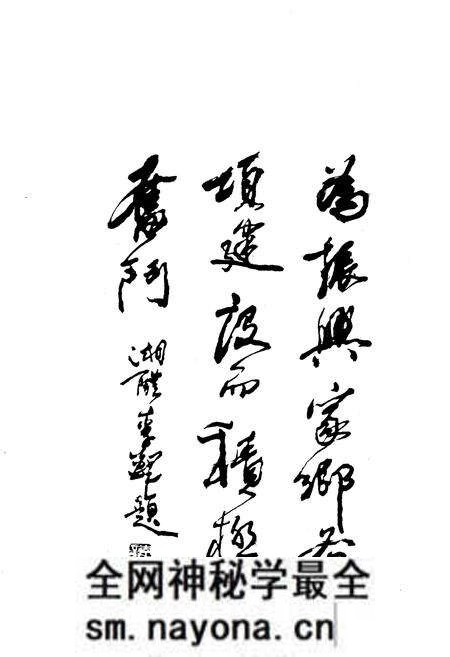 為振興家鄉各
項建設而積極
奮鬥
湘醴李鐸題
全网神秘学最全
sm.nayona.cn